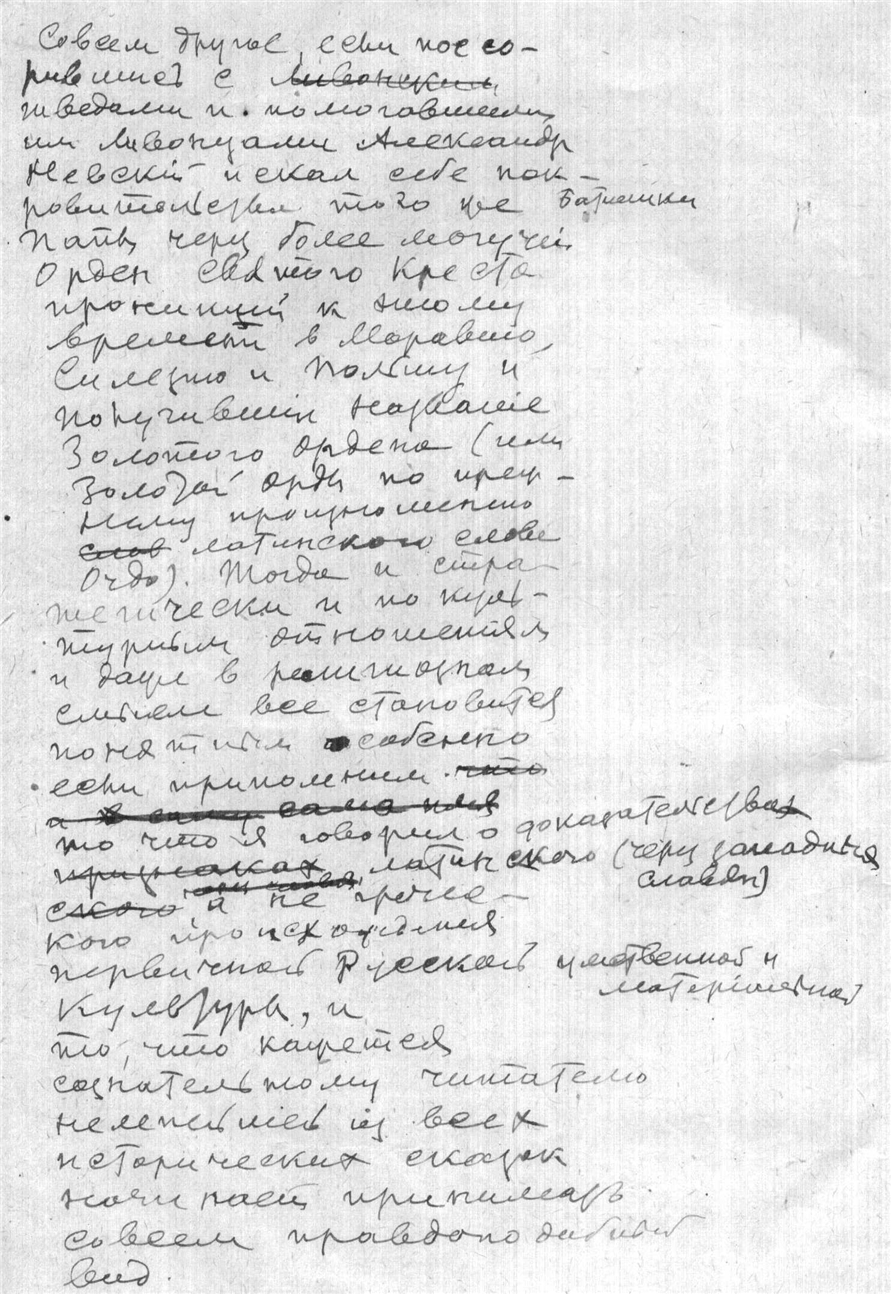 Совсем другое, если поссо-
рившись с Ливонским
шведами и помогавшими
им Ливонцами Александр
Невскiй искал себе пок-
ровительства того же Батюшки
Папы через более могучiй
Орден Святого Креста
проникший к этому
времени в Моравию,
Силезию и Польшу и
получившiй названiе
Золотого ордена (или
Золотой Орды по преж-
нему произношению
слов латинского слова
Ордо). Тогда и стра-
тегически и по куль-
турным отношениям
и даже в религиозном
смысле все становится
понятным особенно
если припомним что
и в силу само
то что я говорил о доказательствах
признаках латинского (через западных
славян)
ского а не гречес-
кого происхождения
первичной Русской умственной и
матерiальной
Культуры, и
то, что кажется
сознательному читателю
нелепейшей из всех
исторических сказок
начинает принимать
совсем правдоподобный
вид.